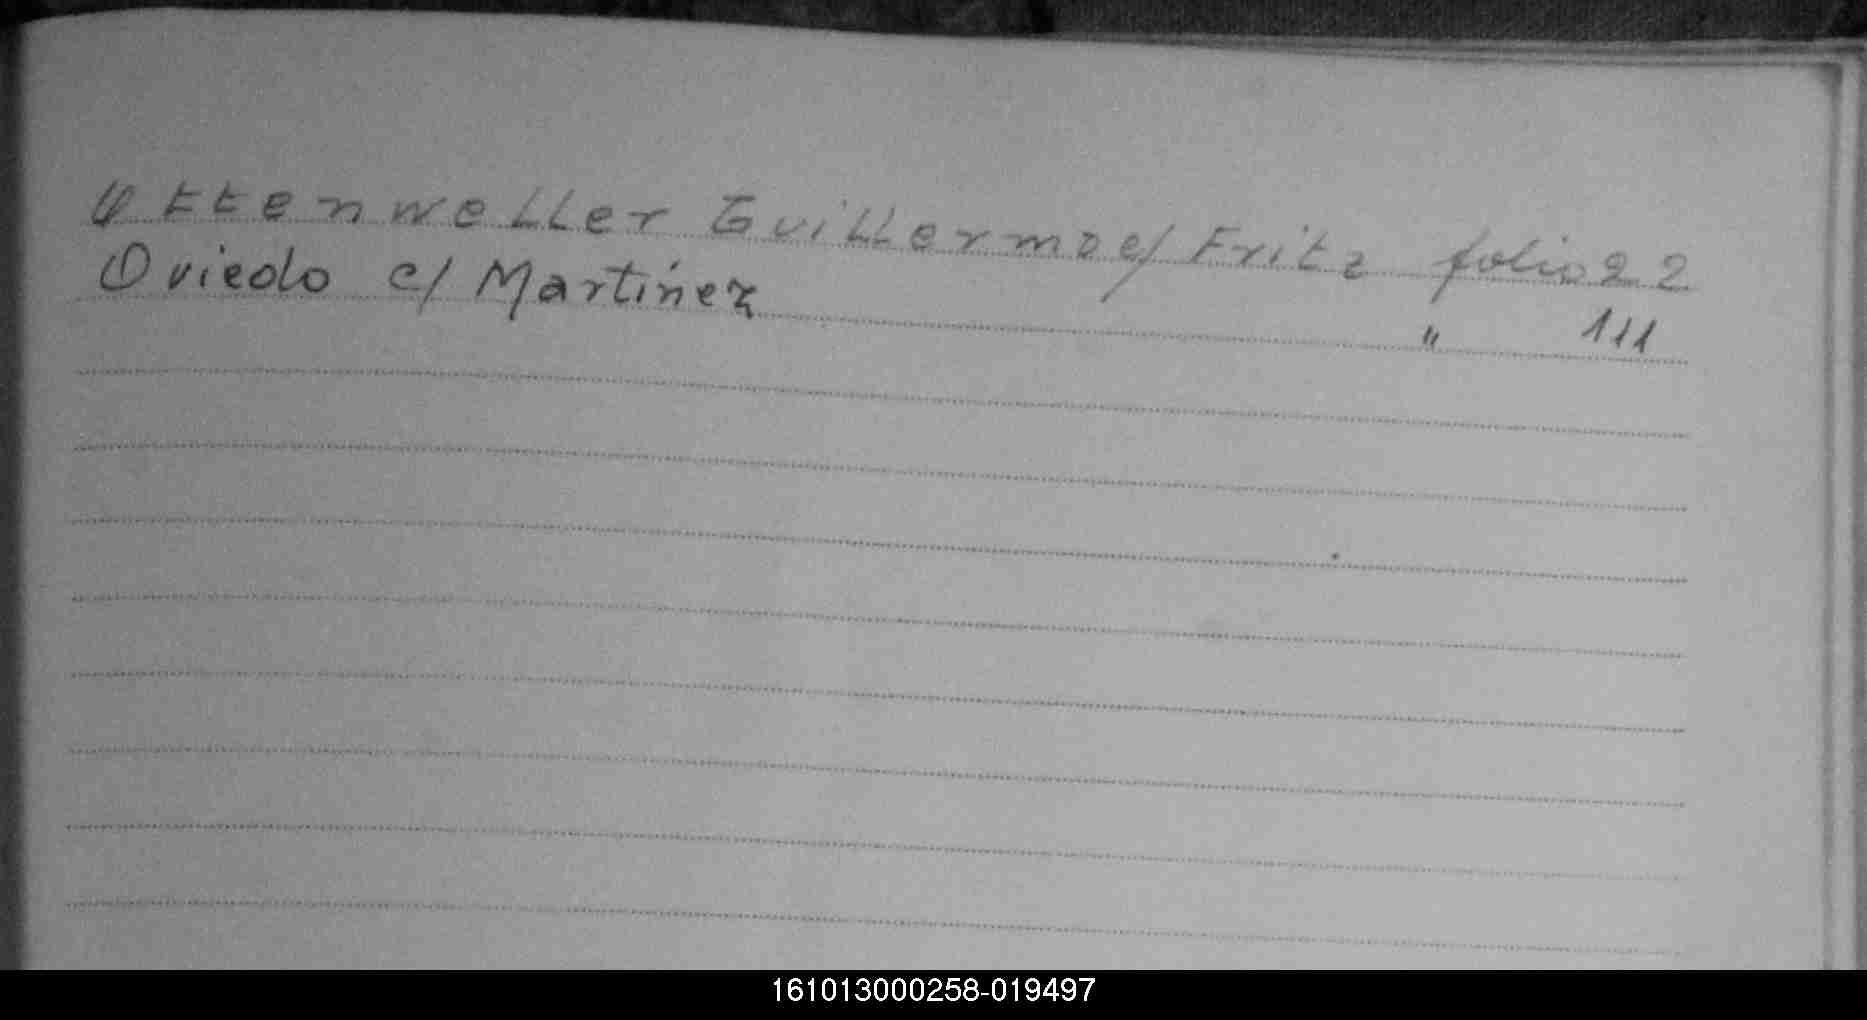 Ottenweller Guillermo c/ Fritz folio 22
Oviedo c/ Martinez " 111
161013000258-019497